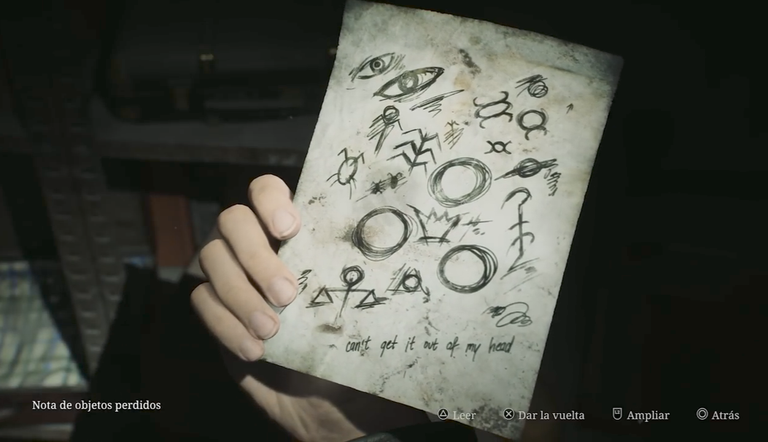 can't get it out of my head
Nota de objetos perdidos
Leer
Dar la vuelta
Ampliar
Atrás